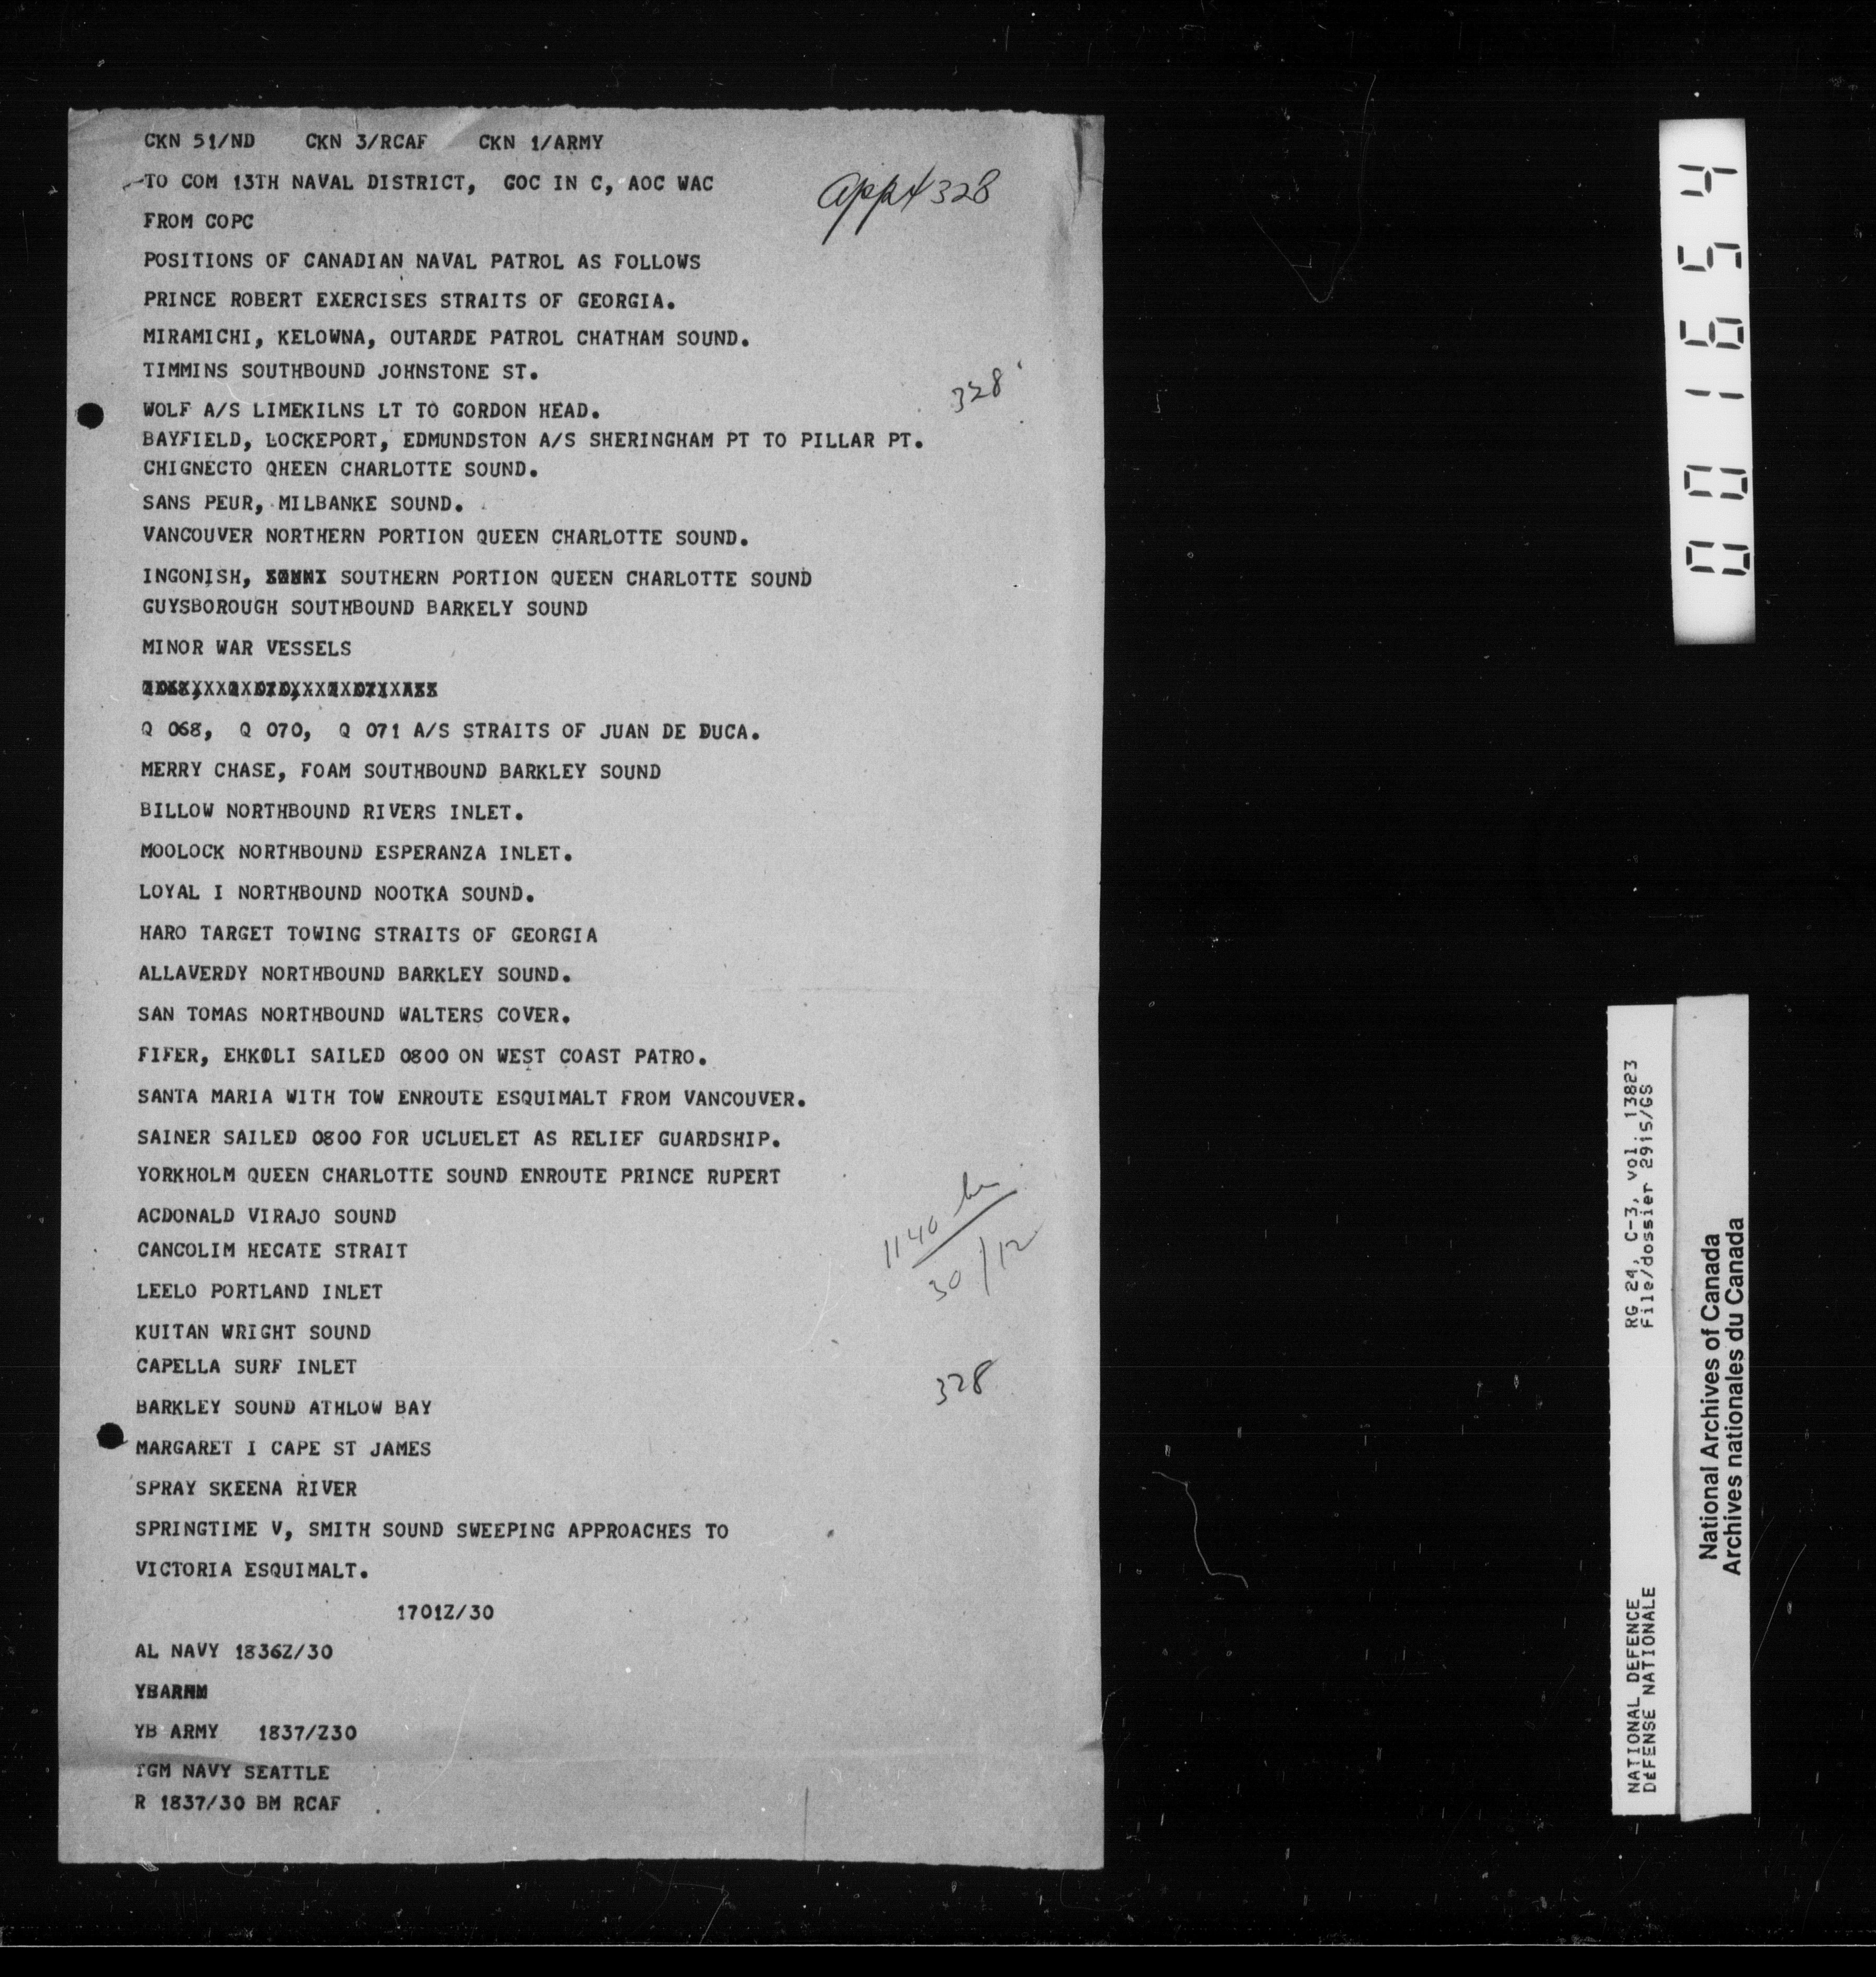 CKN 51/ND CKN 3/RCAF CKN 1/ARMY
TO COM 13TH NAVAL DISTRICT, GOC IN C, AOC WAC
appx 328
FROM COPC
POSITIONS OF CANADIAN NAVAL PATROL AS FOLLOWS
PRINCE ROBERT EXERCISES STRAITS OF GEORGIA.
MIRAMICHI, KELOWNA, OUTARDE PATROL CHATHAM SOUND.
TIMMINS SOUTHBOUND JOHNSTONE ST.
328
WOLF A/S LIMEKILNS LT TO GORDON HEAD.
BAYFIELD, LOCKEPORT, EDMUNDSTON A/S SHERINGHAM PT TO PILLAR PT.
CHIGNECTO QHEEN CHARLOTTE SOUND.
SANS PEUR, MILBANKE SOUND.
VANCOUVER NORTHERN PORTION QUEEN CHARLOTTE SOUND.
INGONISH, SOUTHERN PORTION QUEEN CHARLOTTE SOUND
GUYSBOROUGH SOUTHBOUND BARKELY SOUND
MINOR WAR VESSELS
Q 068, Q 070, Q 071 A/S STRAITS OF JUAN DE DUCA.
MERRY CHASE, FOAM SOUTHBOUND BARKLEY SOUND
BILLOW NORTHBOUND RIVERS INLET.
MOOLOCK NORTHBOUND ESPERANZA INLET.
LOYAL I NORTHBOUND NOOTKA SOUND.
HARO TARGET TOWING STRAITS OF GEORGIA
ALLAVERDY NORTHBOUND BARKLEY SOUND.
SAN TOMAS NORTHBOUND WALTERS COVER.
FIFER, EHKOLI SAILED 0800 ON WEST COAST PATRO.
SANTA MARIA WITH TOW ENROUTE ESQUIMALT FROM VANCOUVER.
SAINER SAILED 0800 FOR UCLUELET AS RELIEF GUARDSHIP.
YORKHOLM QUEEN CHARLOTTE SOUND ENROUTE PRINCE RUPERT
ACDONALD VIRAJO SOUND
1140
30/12
CANCOLIM HECATE STRAIT
LEELO PORTLAND INLET
KUITAN WRIGHT SOUND
CAPELLA SURF INLET
328
BARKLEY SOUND ATHLOW BAY
MARGARET I CAPE ST JAMES
SPRAY SKEENA RIVER
SPRINGTIME V, SMITH SOUND SWEEPING APPROACHES TO
VICTORIA ESQUIMALT.
1701Z/30
AL NAVY 1836Z/30
YB ARMY 1837/Z30
TGM NAVY SEATTLE
R 1837/30 BM RCAF
001654
NATIONAL DEFENCE RG 24, C-3, vol. 13823
DÉFENSE NATIONALE File/dossier 2915/GS
National Archives of Canada
Archives nationales du Canada